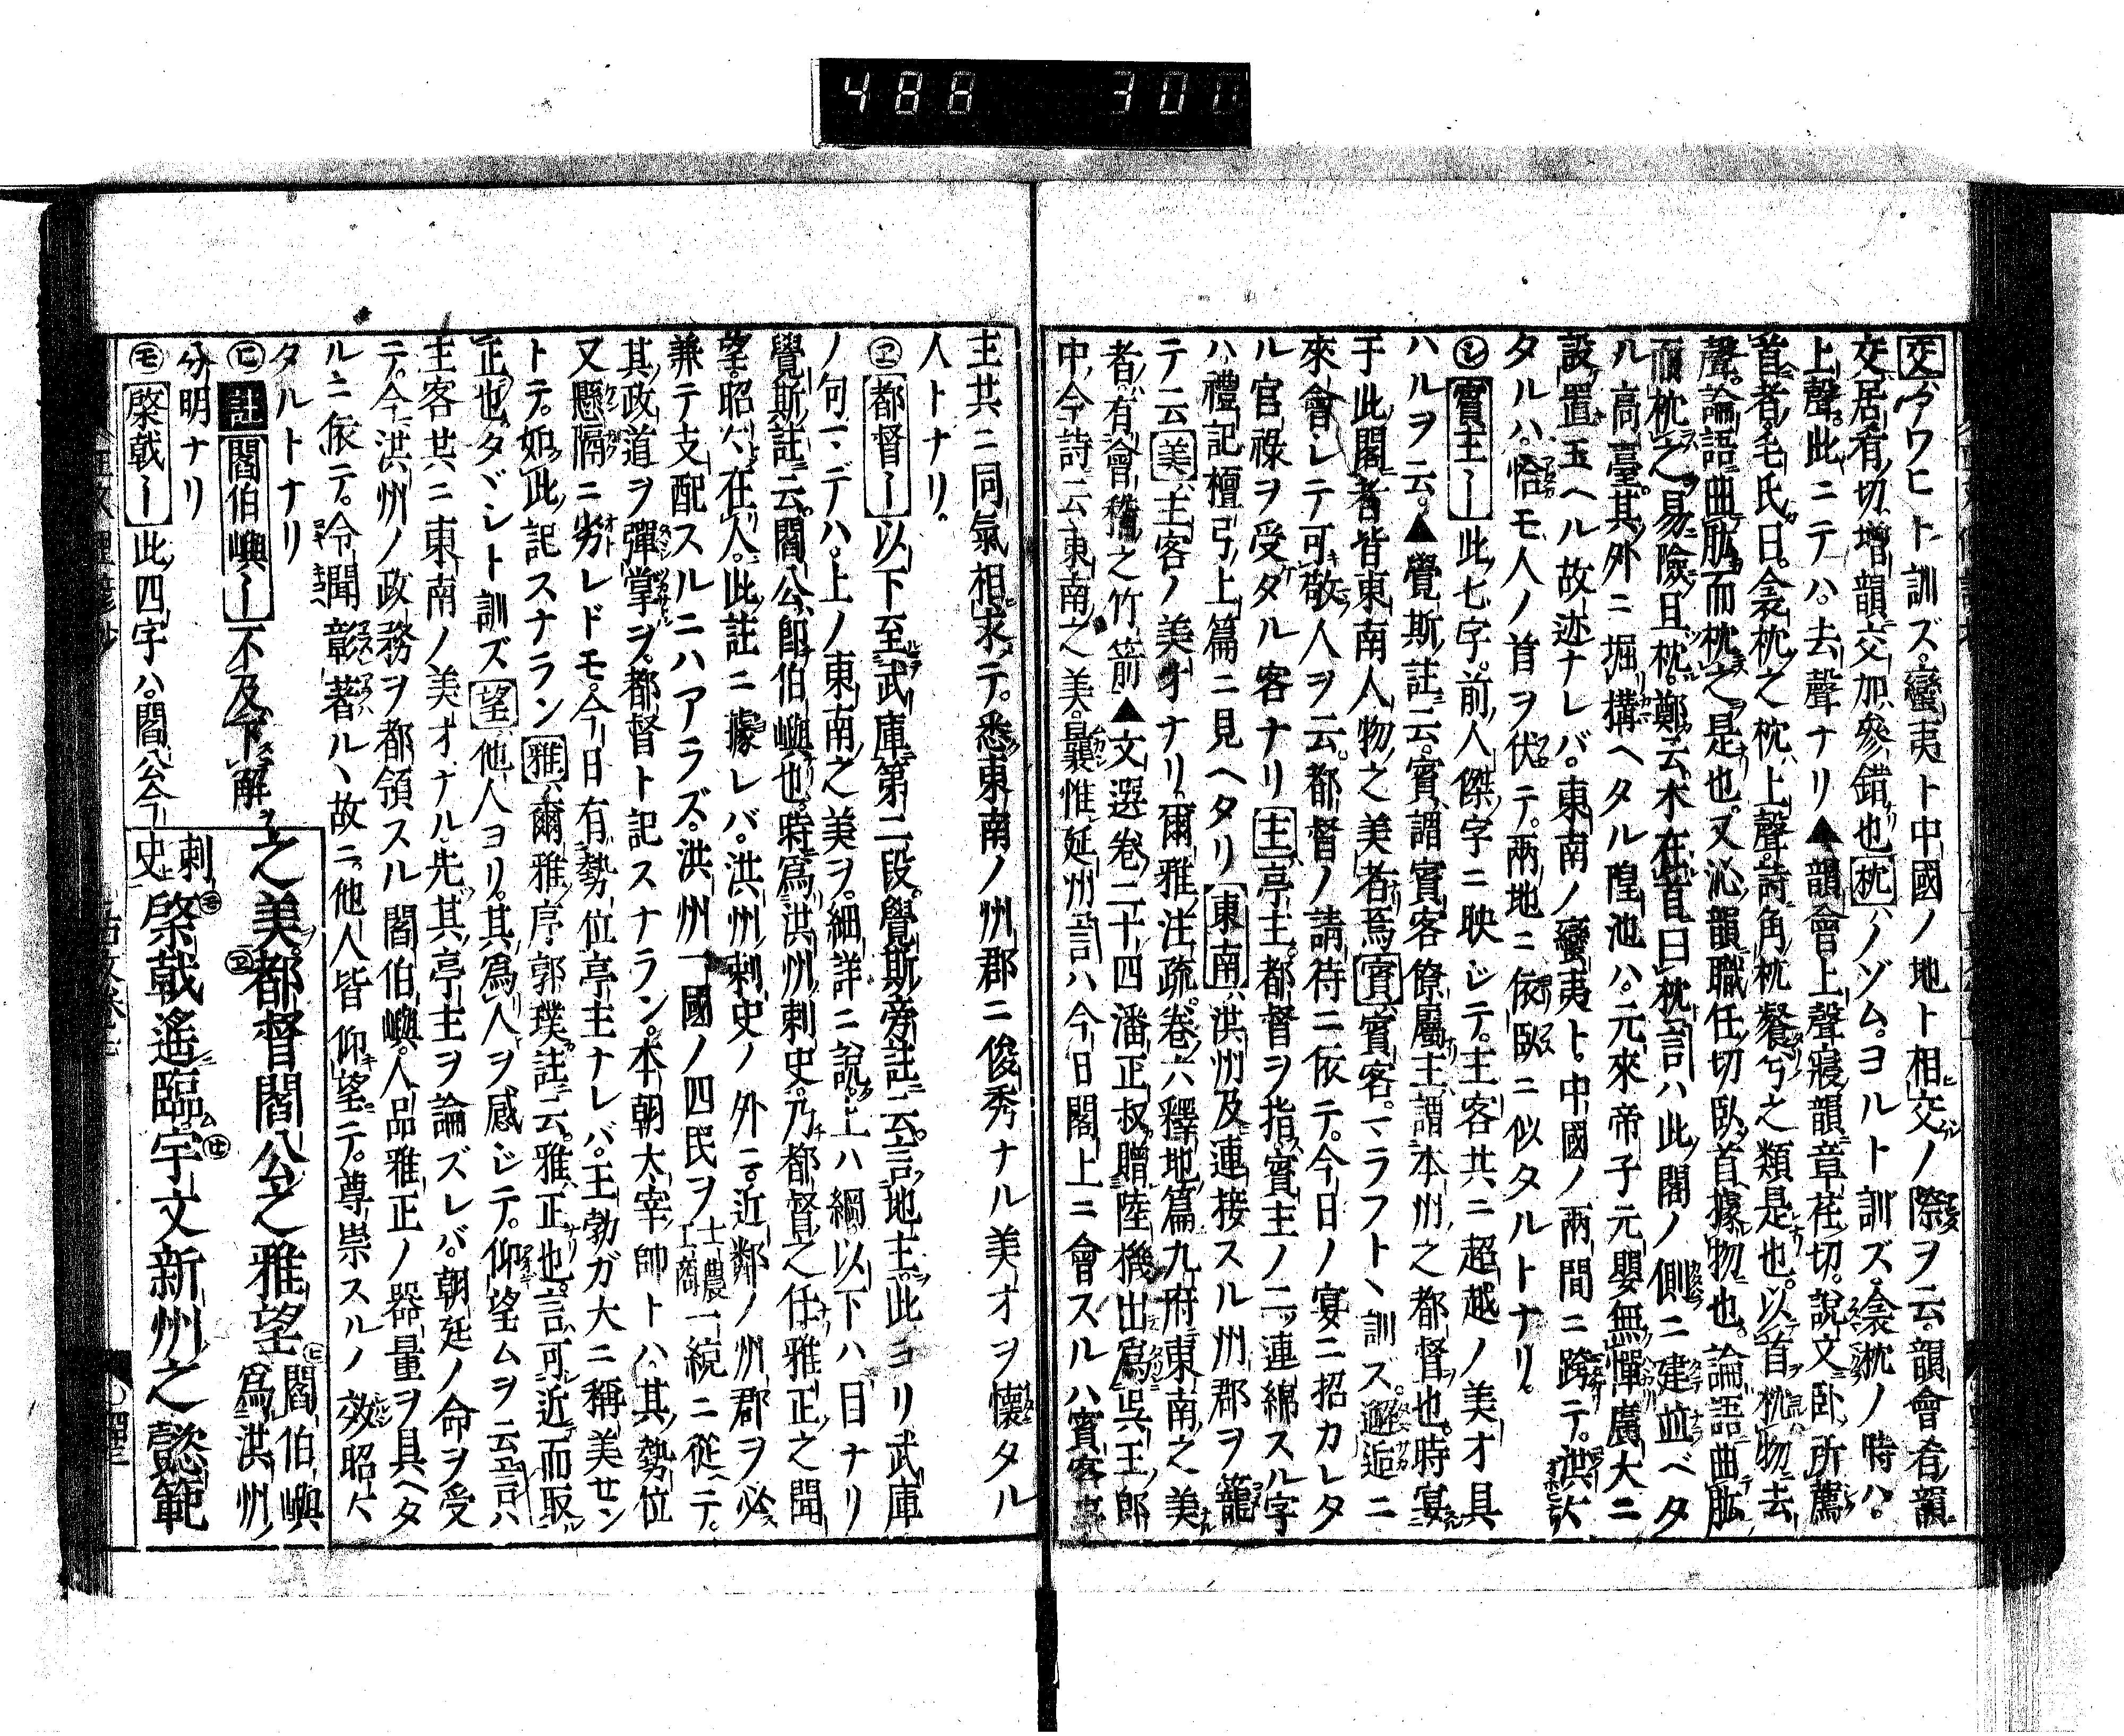 488 300
交ハマウワヒト訓ズ。蠻夷ト中國ノ地ト相交ノ際ヲ云。韻會肴韻
交居肴切、増韻交加參錯也枕ハノゾム。ヨルト訓ズ、衾枕ノ時ハ。
上聲。此ニテハ。去聲ナリ▲韻會上聲寢韻章荏切。說文臥所薦
首者。毛氏曰。衾枕之枕上聲。詩角枕粲兮之類是也。以首枕物去
聲。論語曲肱而枕之是也。又沁韻職任切臥首據物也。論語曲肱
而枕之、易險且枕。鄭云木在首曰枕言ハ此閣ノ側ニ建並ベタ
ル高臺。其外ニ堀搆ヘタル隍池ハ。元來帝子元嬰無憚廣大ニ
設置玉ヘル故迹ナレバ。東南ノ蠻夷ト。中國ノ兩間ニ跨テ。洪大
タルハ。恰モ人ノ首ヲ伏テ。兩地ニ依臥ニ似タルトナリ。
㋛賓主ー此七字。前人傑字ニ映ジテ。主客共ニ超越ノ美才具
ハルヲ云。▲覺斯註云。賓謂賓客僚屬主謂本州之都督也。時宴
于此閣者皆東南人物之美者焉賓ハ賓客。マラフト訓ズ。邂逅ニ
來會レテ可敬人ヲ云。都督ノ請待ニ依テ。今日ノ宴ニ招カレタ
ル官祿ヲ受タル客ナリ主ハ亭主。都督ヲ指。賓主ノ二連綿スル字
ハ禮記檀弓上篇ニ見ヘタリ東南ハ洪州及連接スル州郡ヲ籠
テ云美ハ主客ノ美才ナリ。爾雅注疏卷六釋地篇九府東南之美
者有會稽之竹箭▲文選卷二十四潘正叔贈陸機出爲吳王郎
中令詩云東南之美。曩惟延州言ハ今日閣上ニ會スルハ賓客亭
主共ニ同氣相求テ。悉東南ノ州郡ニ俊秀ナル美才ヲ懷タル
人トナリ。
㋓都督ー以下至武庫第二段。覺斯旁註云。言地主。此ヨリ武庫
ノ句マデハ。上ノ東南之美ヲ。細詳ニ說。上ハ綱以下ハ目ナリ
覺斯註云。閻公、卽伯嶼也。時爲洪州刺史。乃都督之任雅正之聞
望。昭ハ在人。此註ニ據レバ。洪州刺史ノ外ニ。近鄰ノ州郡ヲ必
兼テ支配スルニハアラズ。洪州一國ノ四民ヲ士農工商一統ニ從ヘテ。
其政道ヲ彈掌ヲ。都督ト記スナラン。本朝大宰帥トハ。其勢位
又懸隔ニ劣レドモ。今日有勢位亭主ナレバ。王勃ガ大ニ稱美セン
トテ。如此記スナラン雅ハ爾雅序郭璞註云。雅正也。言可近而取
正也。タヾシト訓ズ望ハ他人ヨリ。其爲人ヲ感ジテ。仰望ムヲ云言ハ
主客共ニ東南ノ美才ナル。先其亭主ヲ論ズレバ。朝廷ノ命ヲ受
テ。今洪州ノ政務ヲ都領スル閻伯嶼。人品雅正ノ器量ヲ具ヘタ
ルニ依テ。令聞彰著ル丶故ニ。他人皆仰望テ。尊崇スルノ效昭〻
タルトナリ
㋪註閻伯嶼ー不及下解
分明ナリ
㋲棨戟ー此四字ハ。閻公今
之美都督閻公之雅望閻伯嶼爲洪州
刺史棨戟遙臨宇文新州之懿範